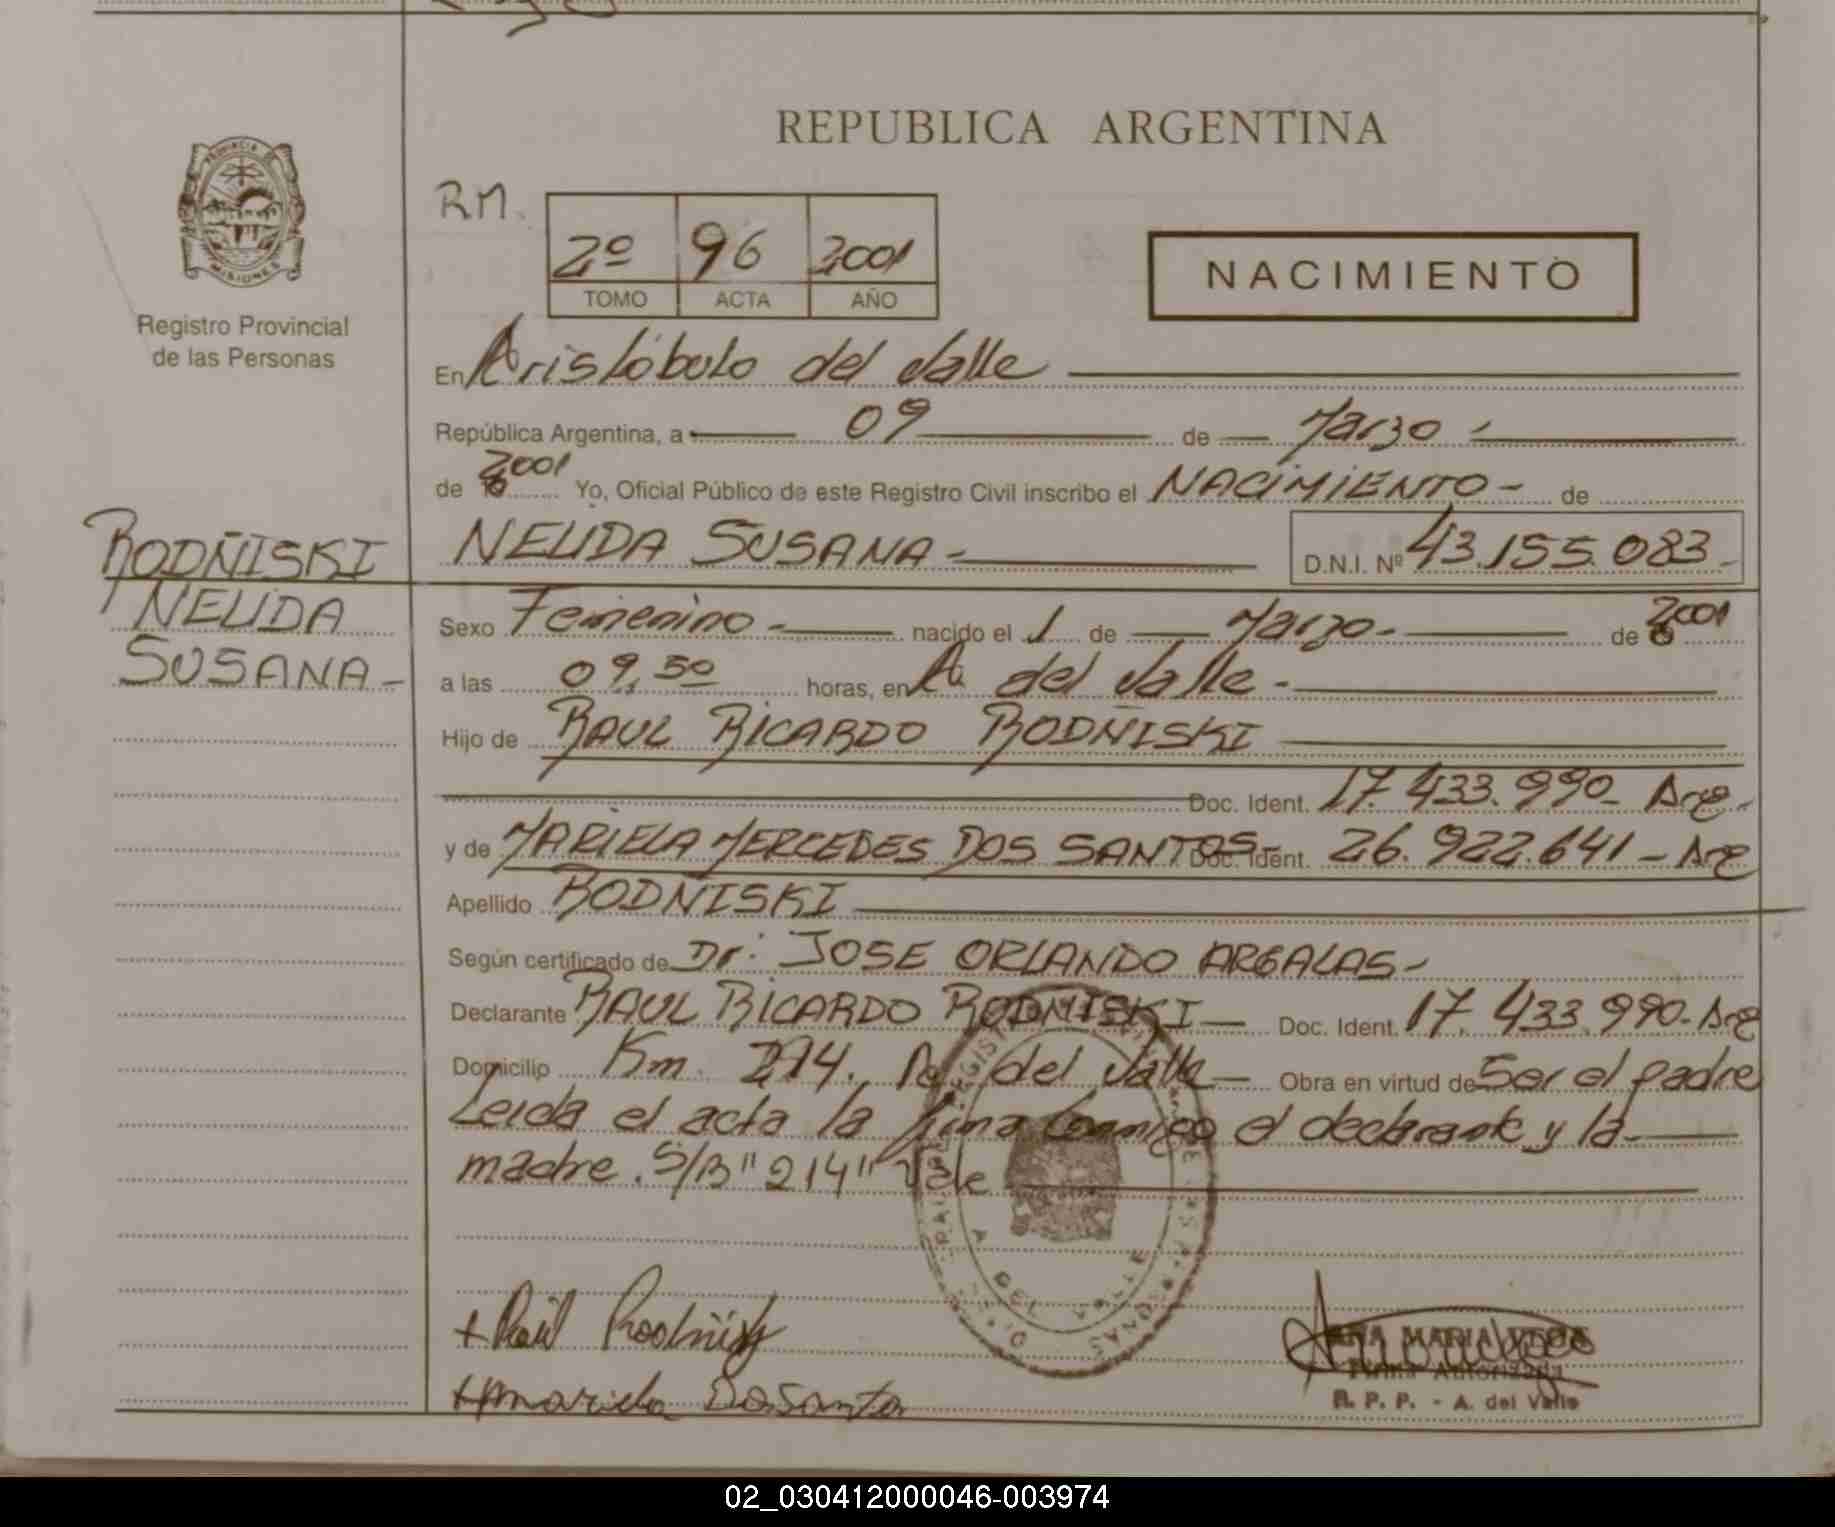 REPUBLICA ARGENTINA
PROVINCIA DE
MISIONES
Registro Provincial
de las Personas
RM.
2º 96 2001
TOMO ACTA AÑO
NACIMIENTO
En Aristóbulo del Valle
República Argentina, a 09 de Marzo
de 2001 Yo, Oficial Público de este Registro Civil inscribo el NACIMIENTO - de
RODÑISKI
NELIDA
SUSANA -
NELIDA SUSANA - D.N.I. Nº 43.155.083 -
Sexo Femenino - nacido el 1 de Marzo - de 2001
a las 09,50 horas, en A. del Valle -
Hijo de RAUL RICARDO RODÑISKI
Doc. Ident. 17.433.990 - Arg -
y de MARIELA MERCEDES DOS SANTOS - Doc. Ident. 26.922.641 - Arg
Apellido RODÑISKI
Según certificado de Dr. JOSE ORLANDO ARGALAS -
Declarante RAUL RICARDO RODÑISKI - Doc. Ident. 17.433.990 - Arg
Domicilio Km. 274. A. del Valle - Obra en virtud de Ser el padre
Leida el acta la firma conmigo el declarante y la
madre. S/B "214" Vale
A DEL VALLE
+ Raúl Rodñisky
+ Mariela Dosantos
ANA MARIA
Firma Autorizada
R. P. P. - A. del Valle
02_030412000046-003974